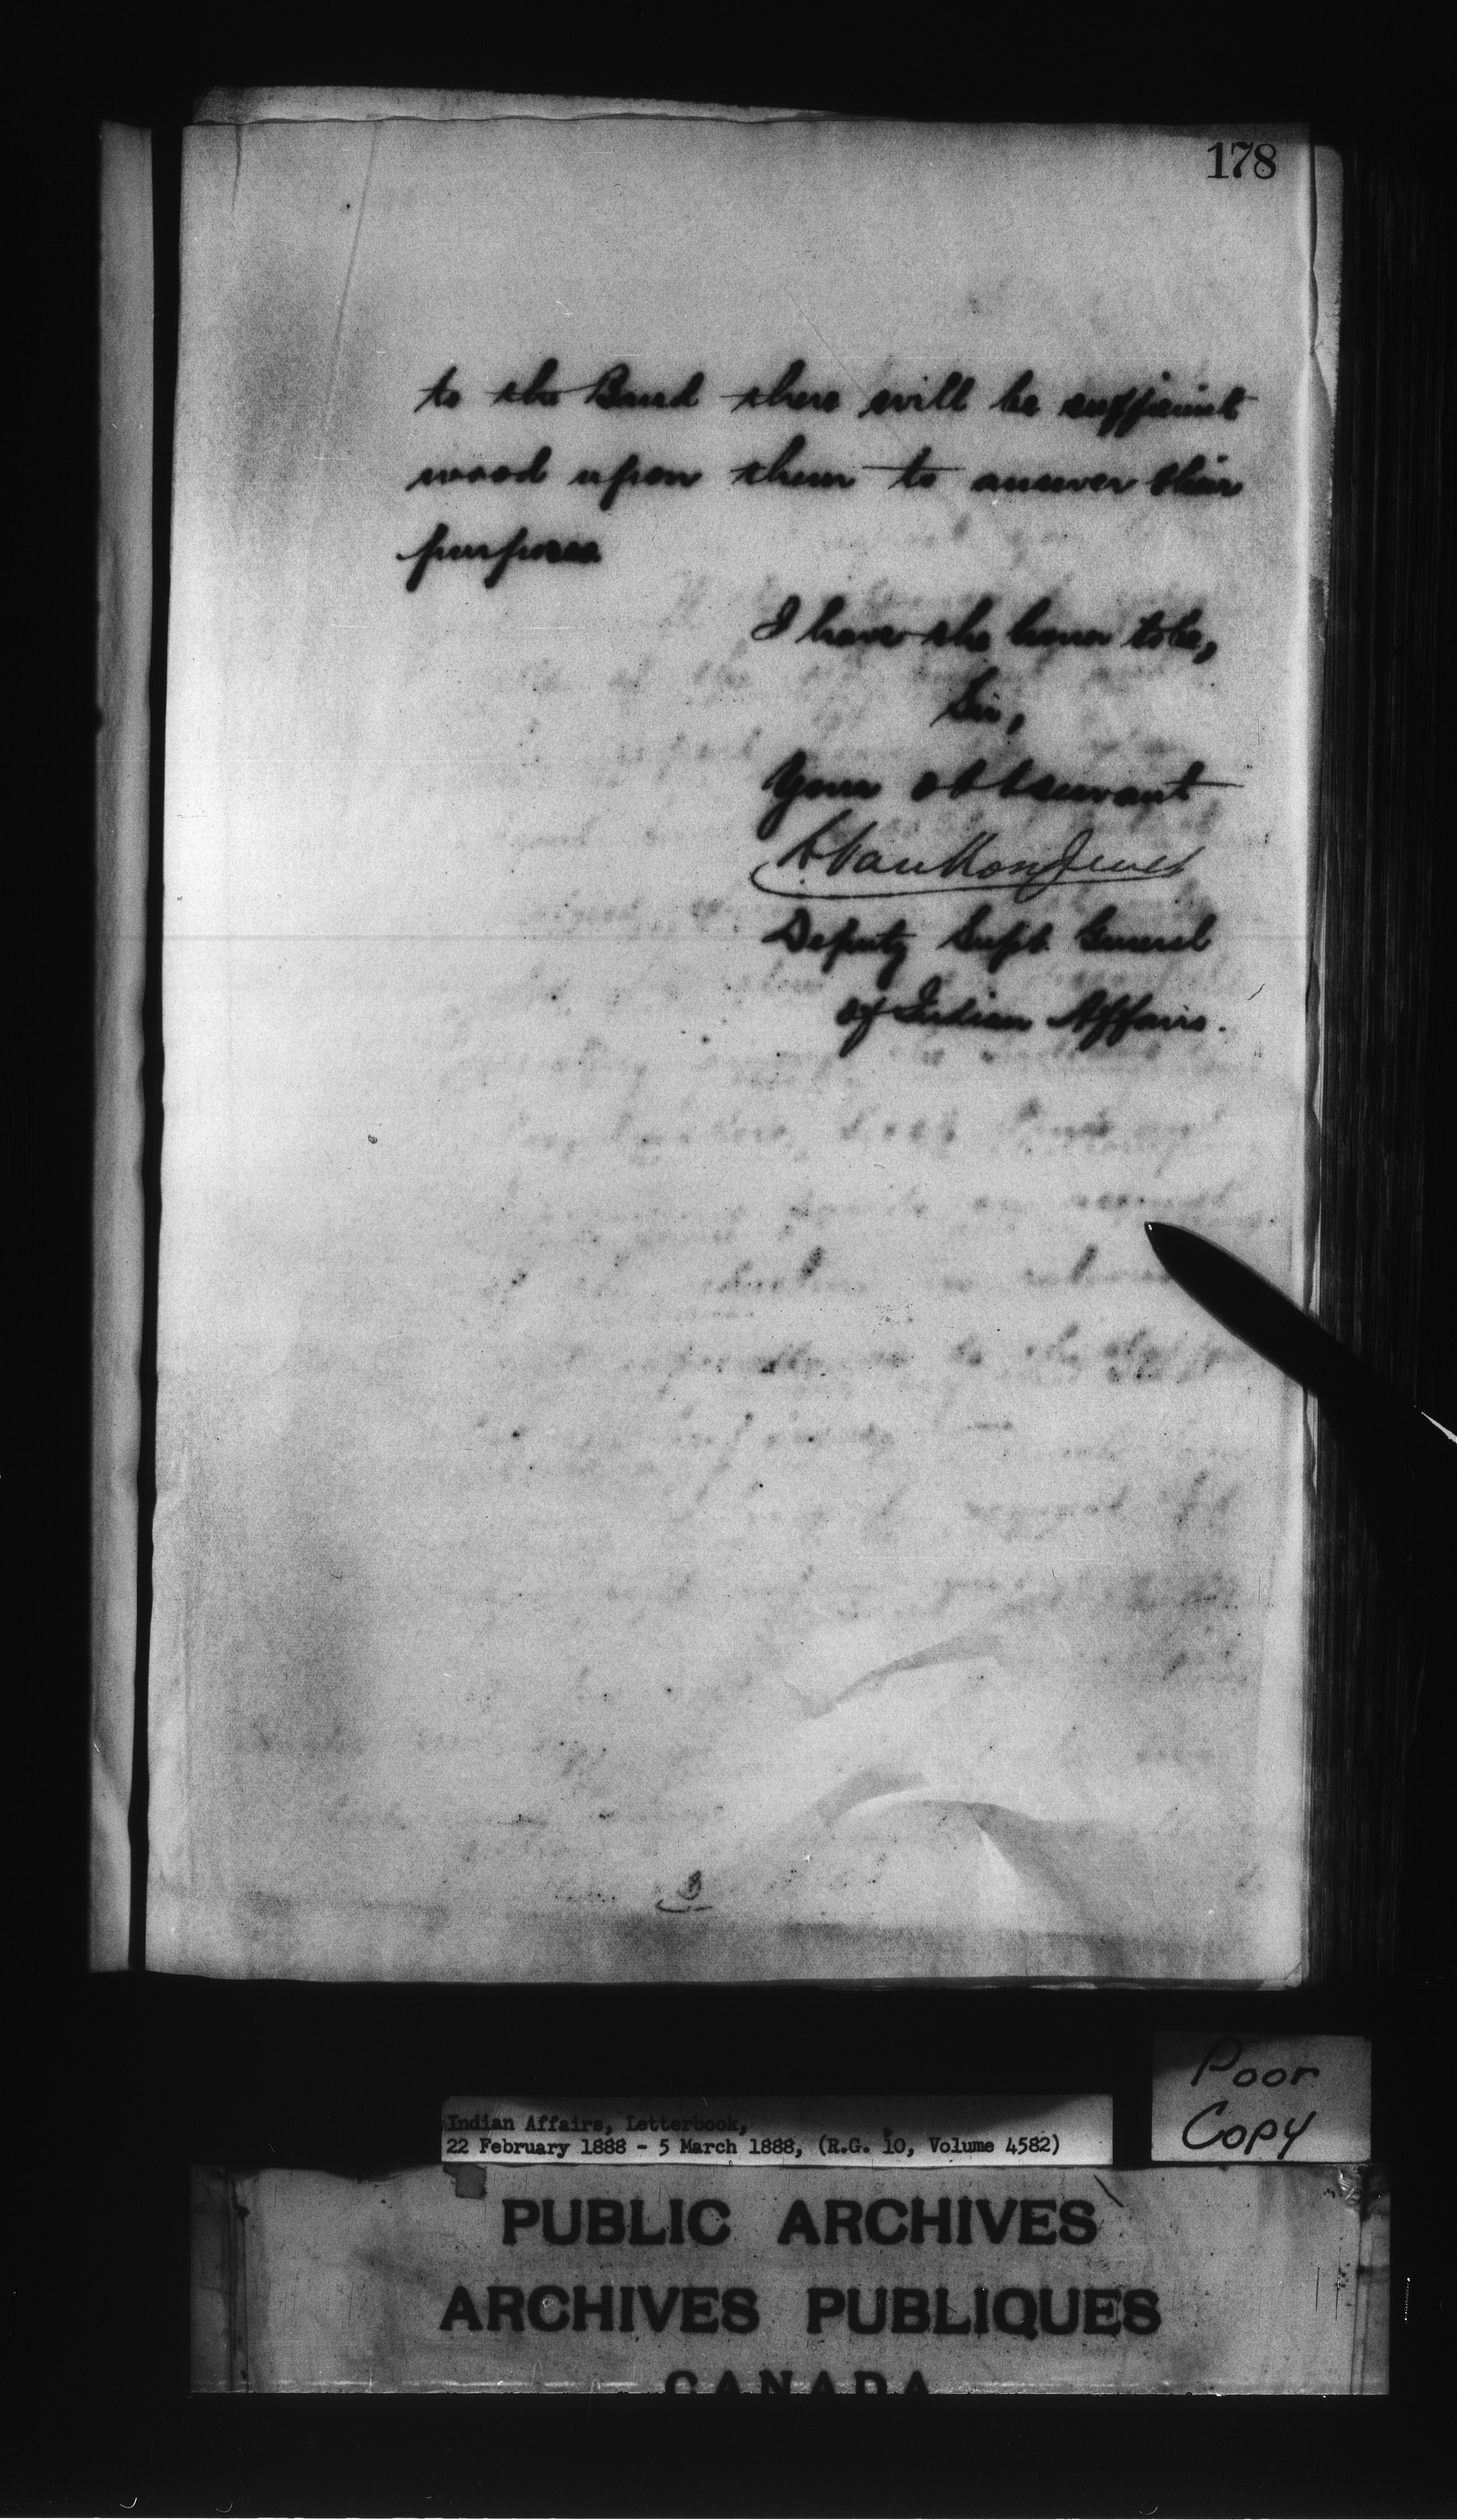 178
to the Band there will be sufficient
wood upon them to answer their
purposes.
I have the honor to be,
Sir,
Your obt servant
L VanKoughnet
Deputy Supt. General
of Indian Affairs.
Poor
Copy
Indian Affairs, Letterbook,
22 February 1888 - 5 March 1888, (R.G. 10, Volume 4582)
PUBLIC ARCHIVES
ARCHIVES PUBLIQUES
CANADA